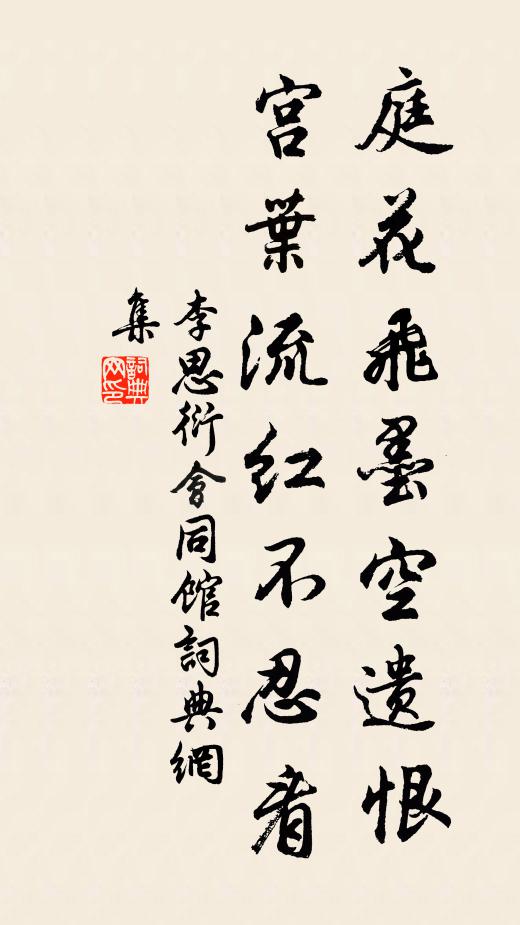 庭花飛墨空遺恨
宮葉流紅不忍看
李思衍會同館詞典網
集
詞典網印